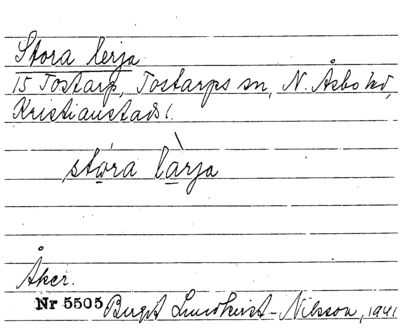 Stora lerja
15 Tostarp, Tostarps sn, N. Åsbo hd,
Kristianstads l.
stọ́ra lạ̀rja
Åker.
Nr 5505 Birgit Lundkvist-Nilsson, 1941